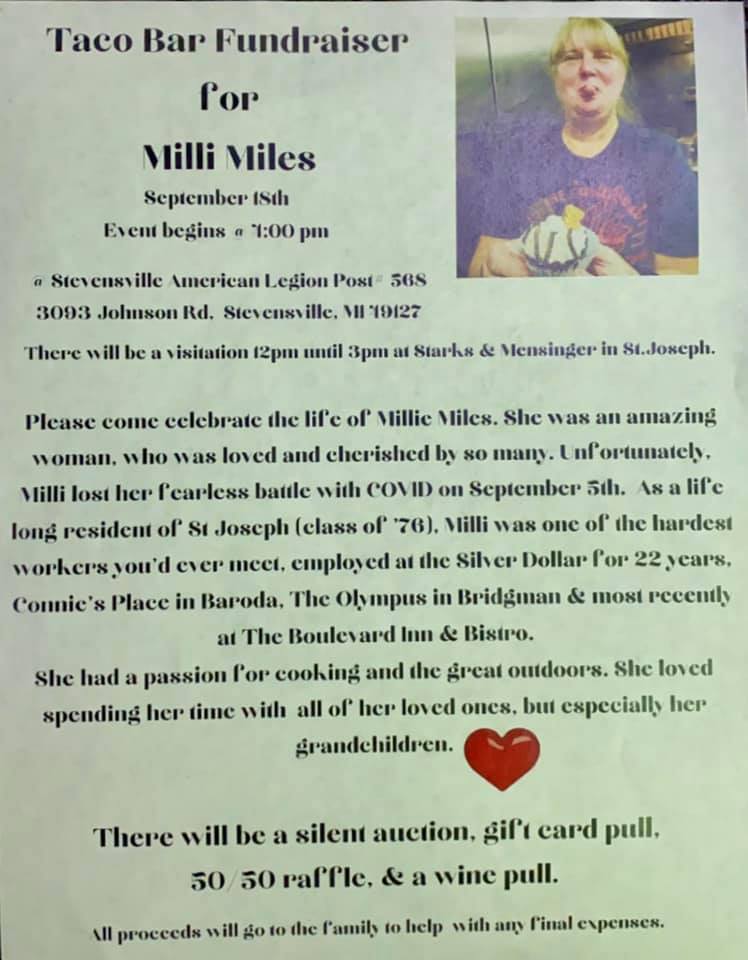 Taco Bar Fundraiser
for
Milli Miles
September 18th
Event begins @ 4:00 pm
@ Stevensville American Legion Post# 568
3093 Johnson Rd, Stevensville, MI 49127
There will be a visitation 12pm until 3pm at Starks & Mensinger in St.Joseph.
Please come celebrate the life of Millie Miles. She was an amazing
woman, who was loved and cherished by so many. Unfortunately,
Milli lost her fearless battle with COVID on September 5th. As a life
long resident of St Joseph (class of '76), Milli was one of the hardest
workers you'd ever meet, employed at the Silver Dollar for 22 years,
Connie's Place in Baroda, The Olympus in Bridgman & most recently
at The Boulevard Inn & Bistro.
She had a passion for cooking and the great outdoors. She loved
spending her time with all of her loved ones, but especially her
grandchildren.
There will be a silent auction, gift card pull,
50/50 raffle, & a wine pull.
All proceeds will go to the family to help with any final expenses.